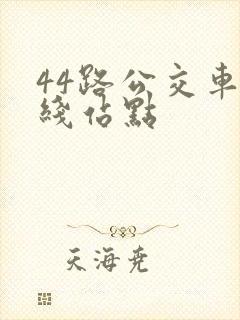 44路公交車
綫站點
天海堯